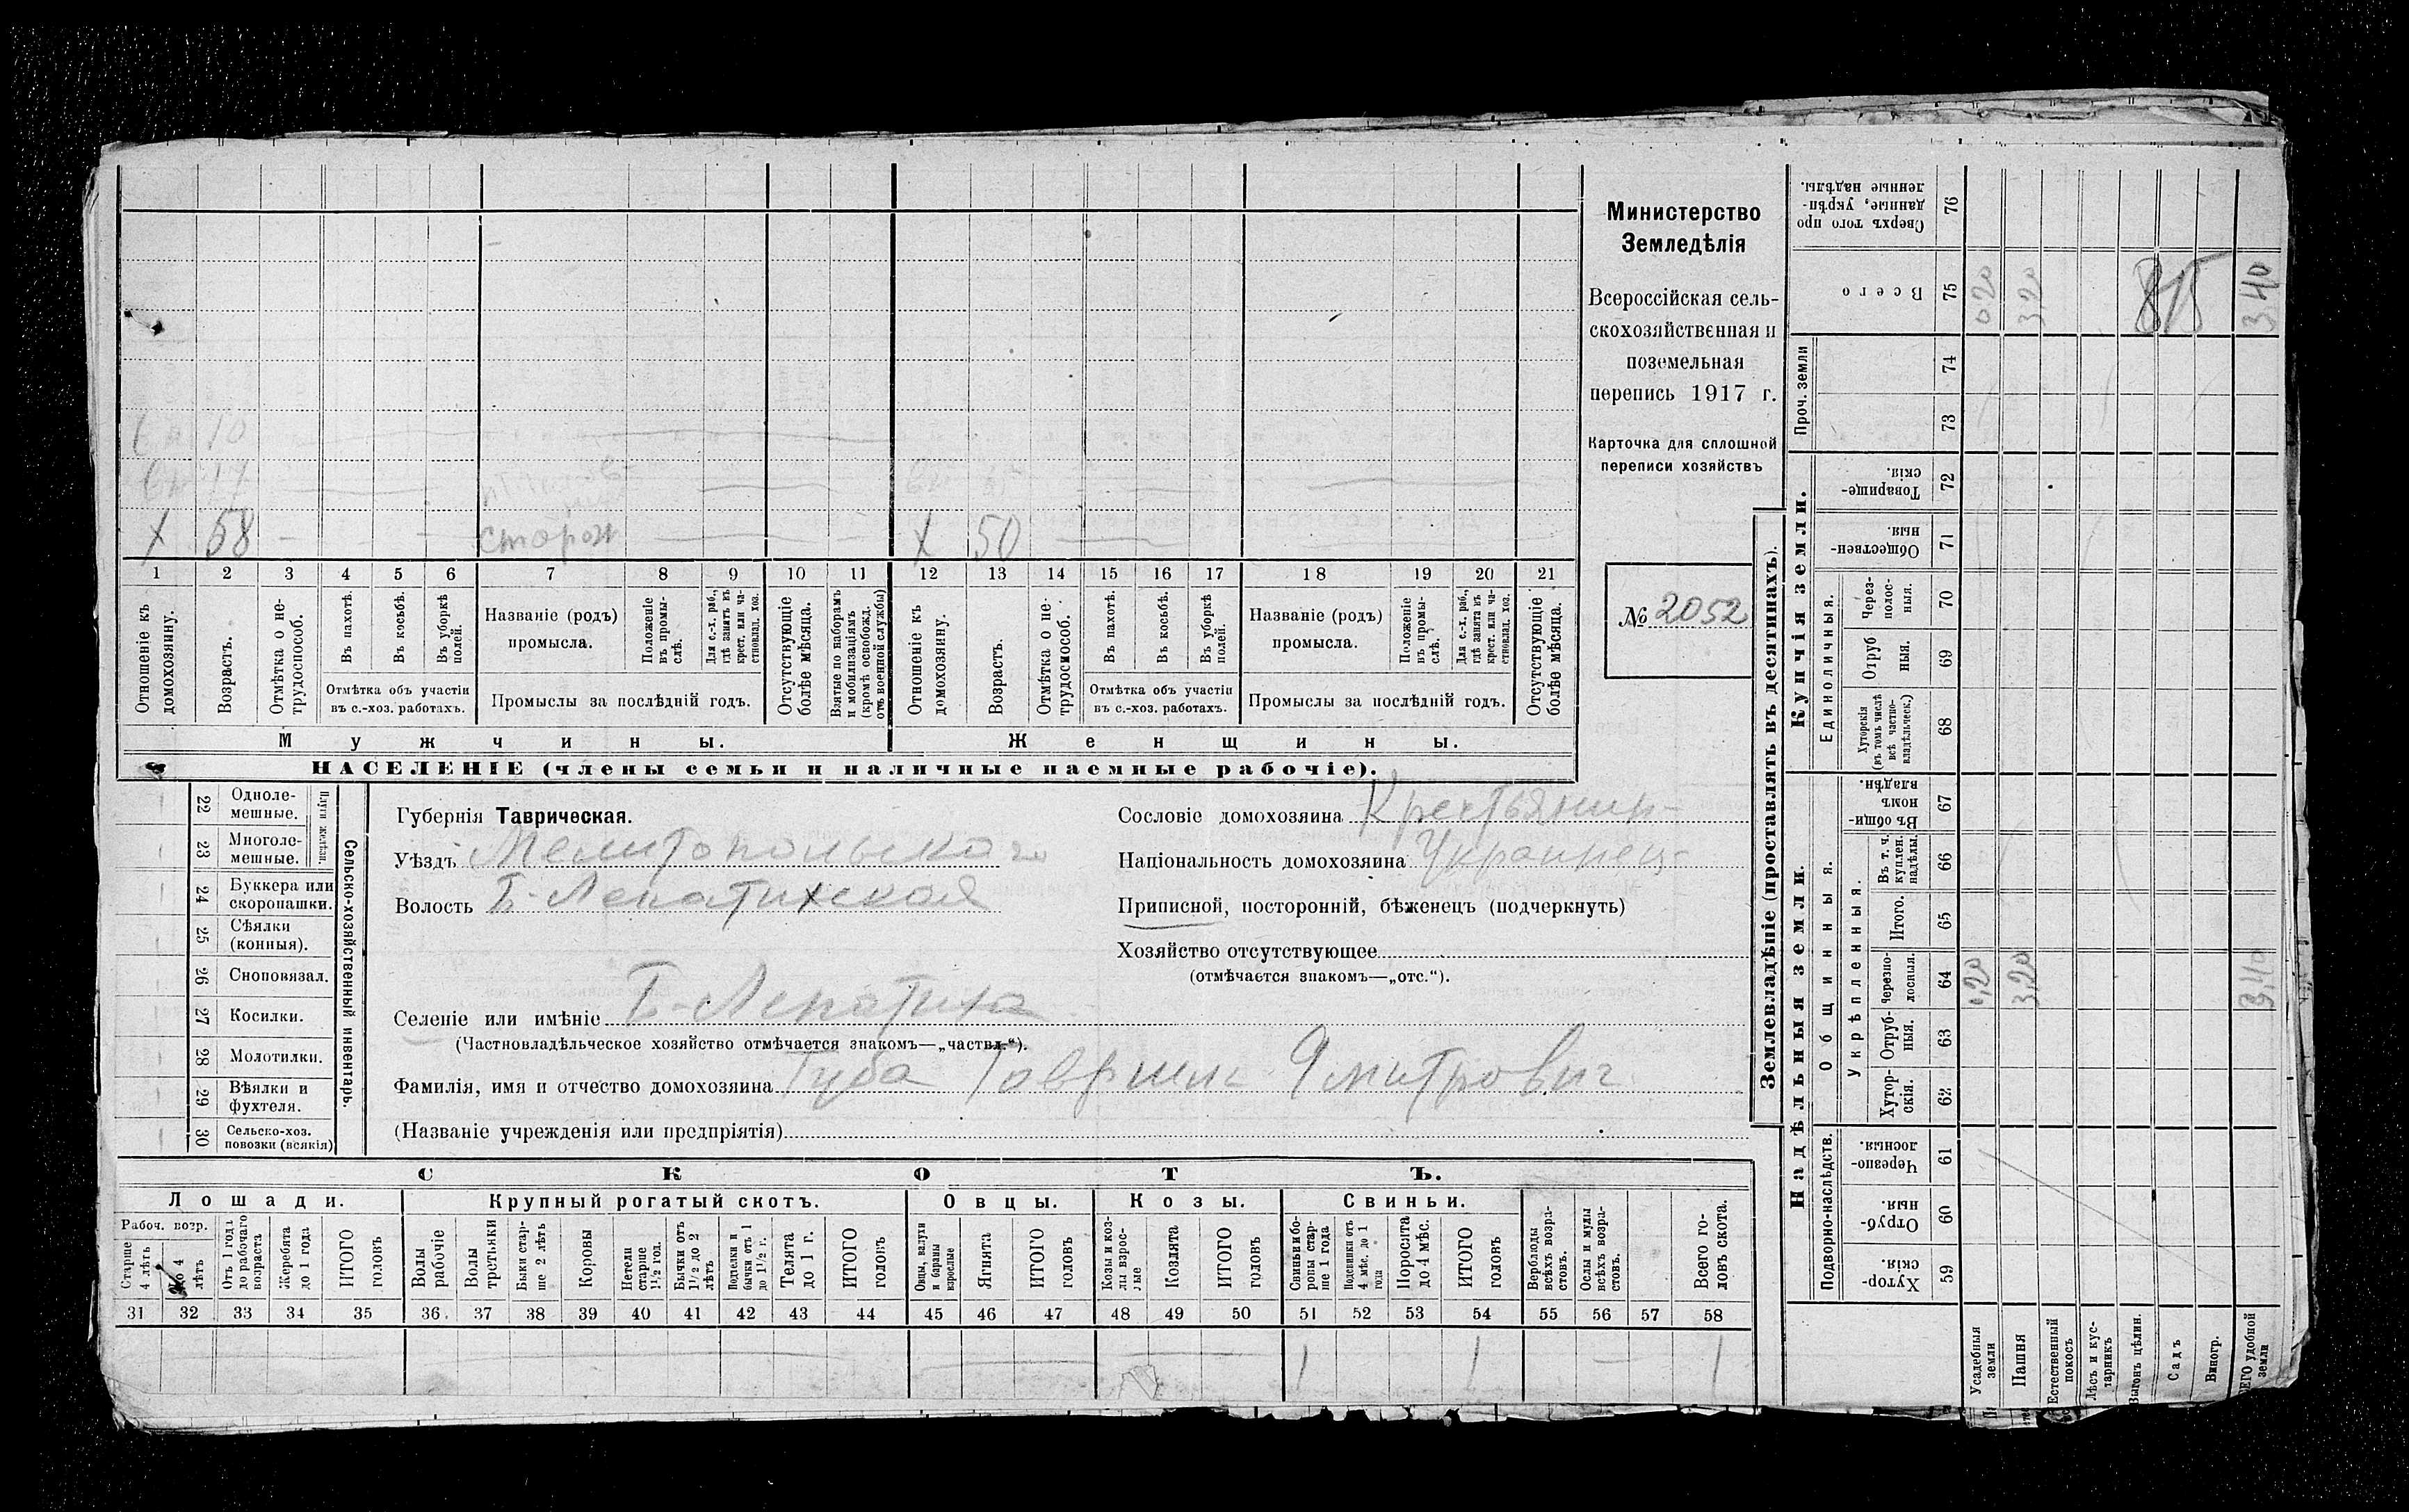 Министерство
Земледѣлія
Всероссійская сель-
скохозяйственная и
поземельная
перепись 1917 г.
Карточка для сплошной
переписи хозяйствъ
№ 2052
6 10
17
х 58 сторож х 50
1 2 3 4 5 6 7 8 9 10 11 12 13 14 15 16 17 18 19 20 21
Отношеніе къ домохозяину.
Возрастъ.
Отмѣтка о не-трудоспособ.
Въ пахотѣ.
Въ косьбѣ.
Въ уборкѣ полей.
Отмѣтка объ участіи
въ с.-хоз. работахъ.
Названіе (родъ)
промысла.
Положеніе въ промы-слѣ.
Для с.-х. раб., гдѣ занятъ въ крест. или ча-стновлад. хоз.
Промыслы за послѣдній годъ.
Отсутствующіе болѣе мѣсяца.
Взятые по наборамъ и мобилизаціямъ (кромѣ освобожд. отъ военной службы)
Отношеніе къ домохозяину.
Возрастъ.
Отмѣтка о не-трудоспособ.
Въ пахотѣ.
Въ косьбѣ.
Въ уборкѣ полей.
Отмѣтка объ участіи
въ с.-хоз. работахъ.
Названіе (родъ)
промысла.
Положеніе въ промы-слѣ.
Для с.-х. раб., гдѣ занята въ крест. или ча-стновлад. хоз.
Промыслы за послѣдній годъ.
Отсутствующіе болѣе мѣсяца.
Мужчины.
Женщины.
НАСЕЛЕНІЕ (члены семьи и наличные наемные рабочіе).
Сельско-хозяйственный инвентарь.
Плуги желѣзн.
22 Одноле-мешные.
23 Многоле-мешные.
24 Буккера или скоропашки.
25 Сѣялки (конныя).
26 Сноповязал.
27 Косилки.
28 Молотилки.
29 Вѣялки и фухтеля.
30 Сельско-хоз. повозки (всякія)
Губернія Таврическая.
Уѣздъ Мелитопольского
Волость Б-Лепатихская
Селеніе или имѣніе Б-Лепатиха
(Частновладѣльческое хозяйство отмѣчается знакомъ—„частвл.“).
Фамилія, имя и отчество домохозяина Губа Гаврила Дмитрович
(Названіе учрежденія или предпріятія)
Сословіе домохозяина Крестьянин-
Національность домохозяина Украинец-
Приписной, посторонній, бѣженецъ (подчеркнуть)
Хозяйство отсутствующее
(отмѣчается знакомъ—„отс.“).
СКОТЪ.
Лошади. Крупный рогатый скотъ. Овцы. Козы. Свиньи.
Рабоч. возр.
Старше 4 лѣтъ
До 4 лѣтъ
Отъ 1 года до рабочаго возраста
Жеребята до 1 года
ИТОГО головъ
Волы рабочіе
Волы третьяки
Быки стар-ше 2 лѣтъ
Коровы
Нетели старше 1½ год.
Бычки отъ 1½ до 2 лѣтъ
Подтелки и бычки отъ 1 до 1½ г.
Телята до 1 г.
ИТОГО головъ
Овцы, валухи и бараны взрослые
Ягнята
ИТОГО головъ
Козы и коз-лы взрос-лые
Козлята
ИТОГО головъ
Свиньи и бо-ровы стар-ше 1 года
Подсвинки отъ 4 мѣс. до 1 года
Поросята до 4 мѣс.
ИТОГО головъ
Верблюды всѣхъ возра-стовъ.
Ослы и мулы всѣхъ возра-стовъ.
Всего го-ловъ скота.
31 32 33 34 35 36 37 38 39 40 41 42 43 44 45 46 47 48 49 50 51 52 53 54 55 56 57 58
1 1 1
Землевладѣніе (проставлять въ десятинахъ).
Надѣльныя земли.
Купчія земли.
Проч. земли
Подворно-наслѣдств.
Общинныя.
Укрѣпленныя.
Единоличныя.
Хутор-скія. 59
Отруб-ныя. 60
Черезпо-лосныя. 61
Хутор-скія. 62
Отруб-ныя. 63
Черезпо-лосныя. 64
Итого. 65
Въ т. ч. куплен. надѣлы 66
Въ общи-номъ владѣн. 67
Хуторскія (въ томъ числѣ всѣ частно-владѣльческ.) 68
Отруб ныя. 69
Через-полос-ныя. 70
Обществен-ныя 71
Товарище-скія. 72
73
74
Всего 75
Сверхъ того про данные, укрѣп-ленные надѣлы. 76
Усадебныя земли
Пашня
Естественный покосъ
Лѣсъ и кус-тарникъ
Выгонъ цѣлин.
Садъ
Виногр.
ЕГО удобной земли
0,20 3,20 3,40
0,20 3,20 815 3,40